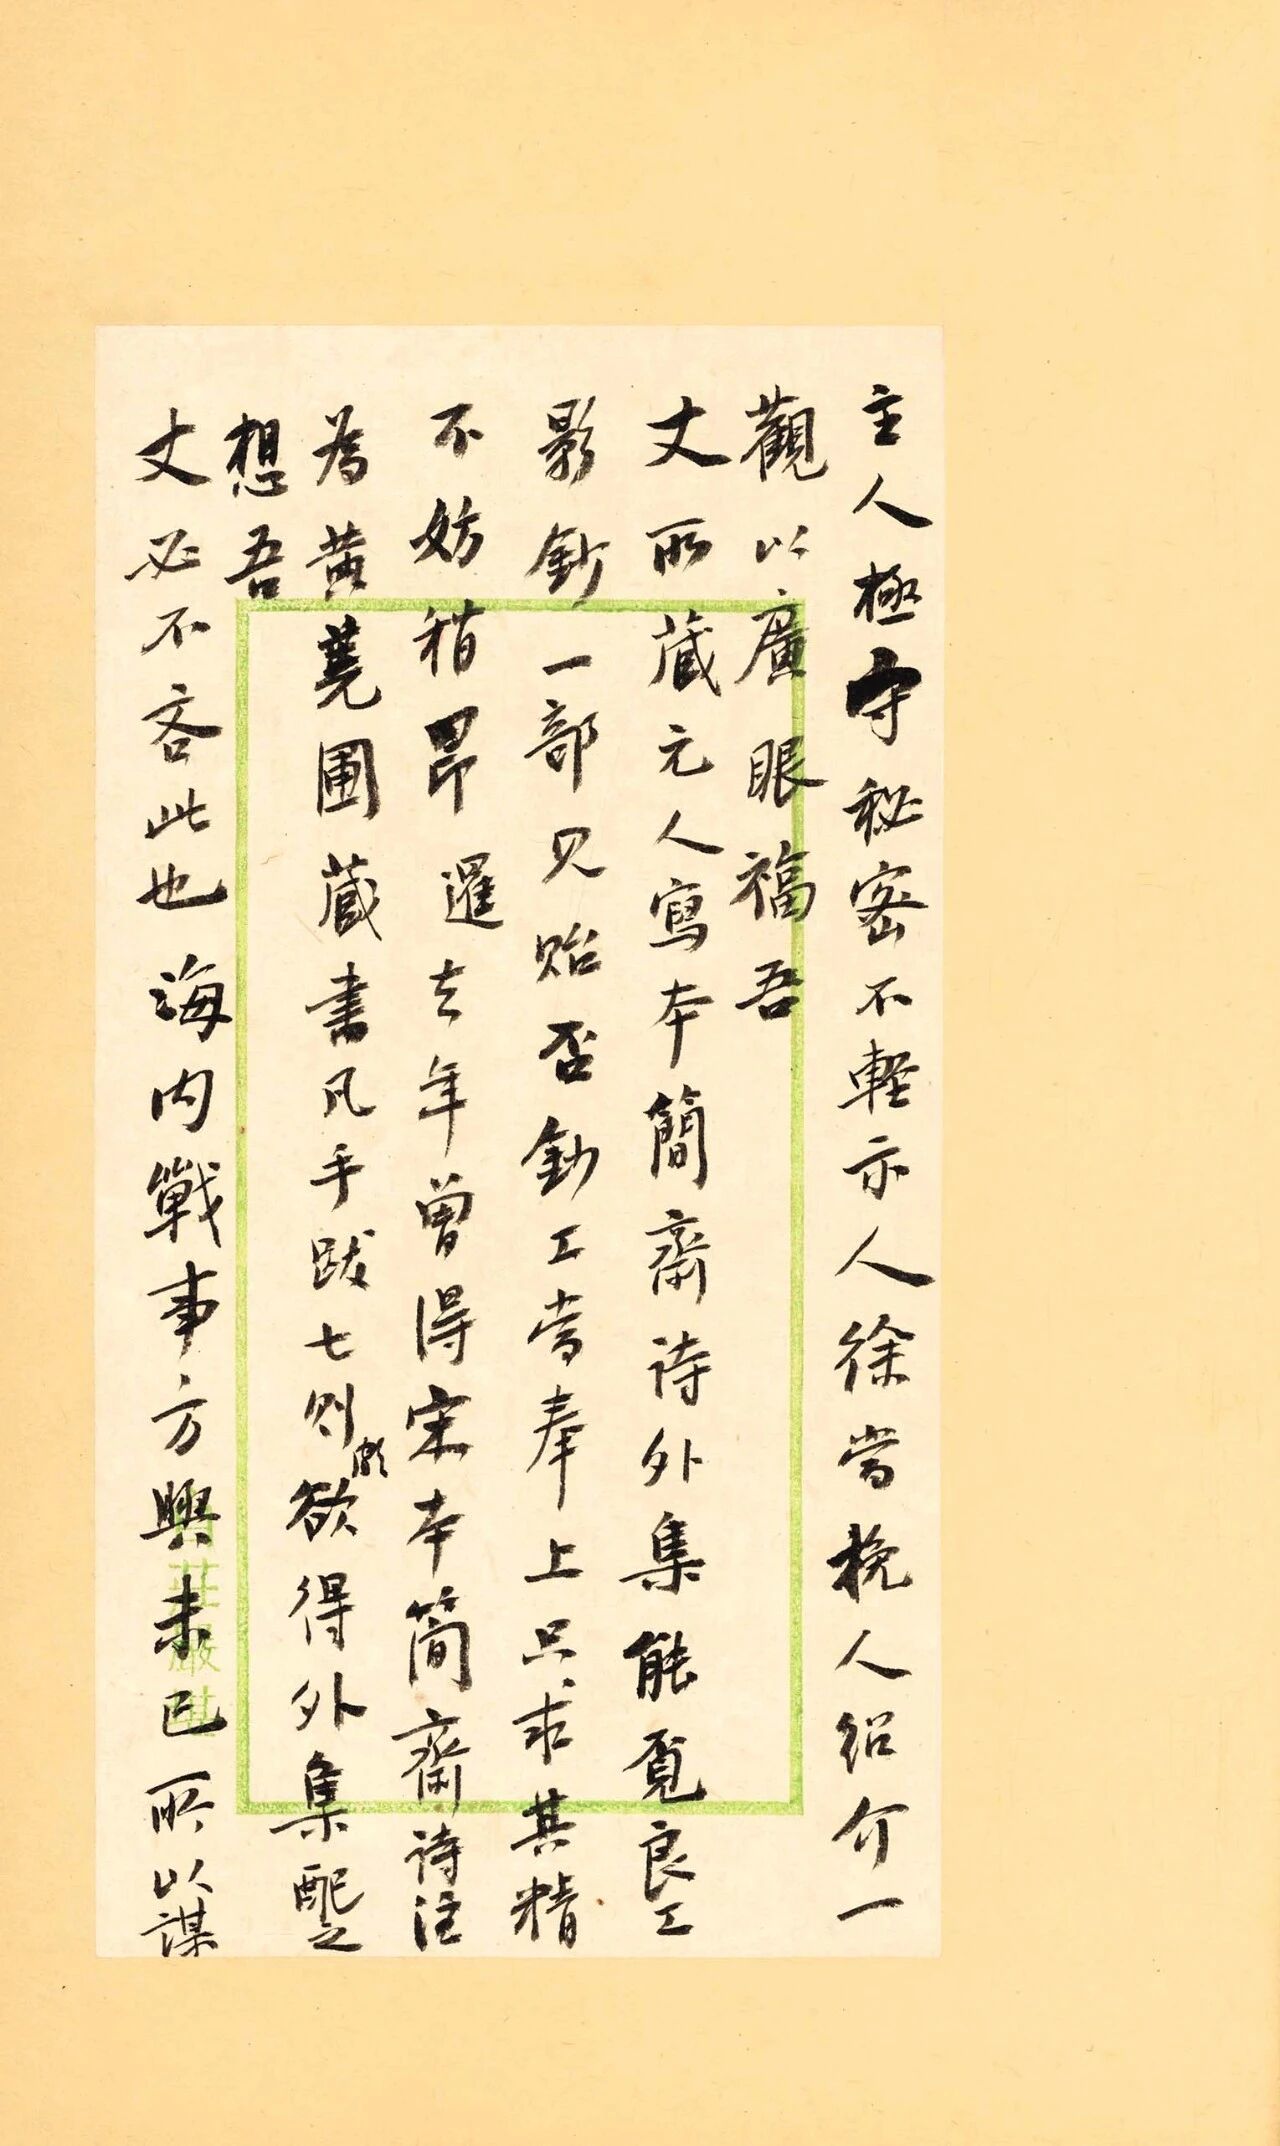 主人極守秘密不輕示人徐當挽人紹介一
觀以廣眼福吾
丈所藏元人寫本簡齋詩外集能覓良工
影鈔一部見貽否鈔工當奉上只求其精
不妨稍昂 暹去年曾得宋本簡齋詩注
為黃蕘圃藏書凡手跋七則頗欲得外集配之
想吾
丈必不吝此也海內戰事方興未已所以謀